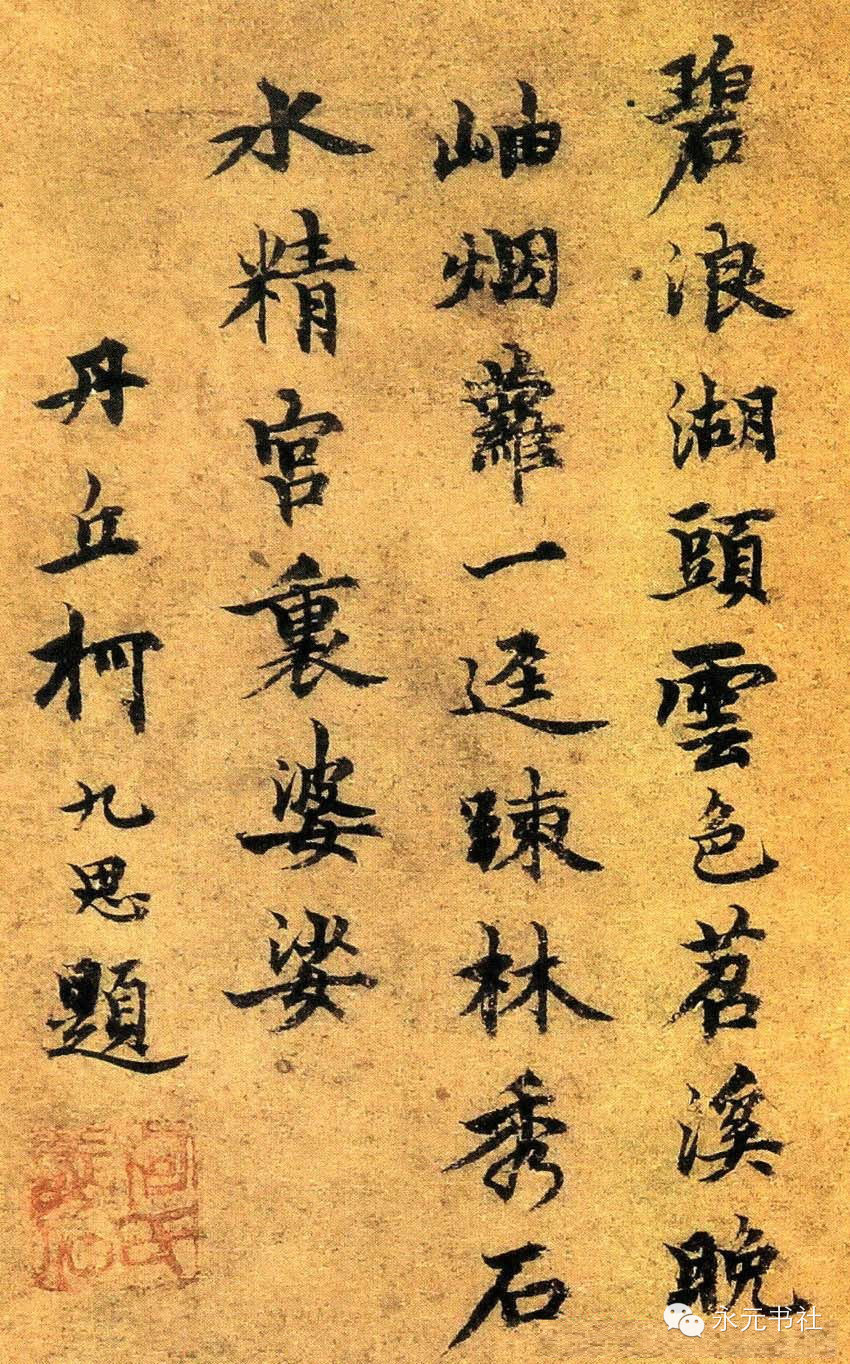 碧浪湖頭雲色苕溪晚
岫烟蘿一逕踈林秀石
水精宮裏婆娑
丹丘柯九思題
永元书社